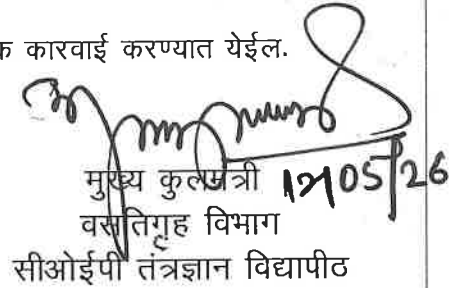 क कारवाई करण्यात येईल.
मुख्य कुलमंत्री
वसतिगृह विभाग
सीओईपी तंत्रज्ञान विद्यापीठ